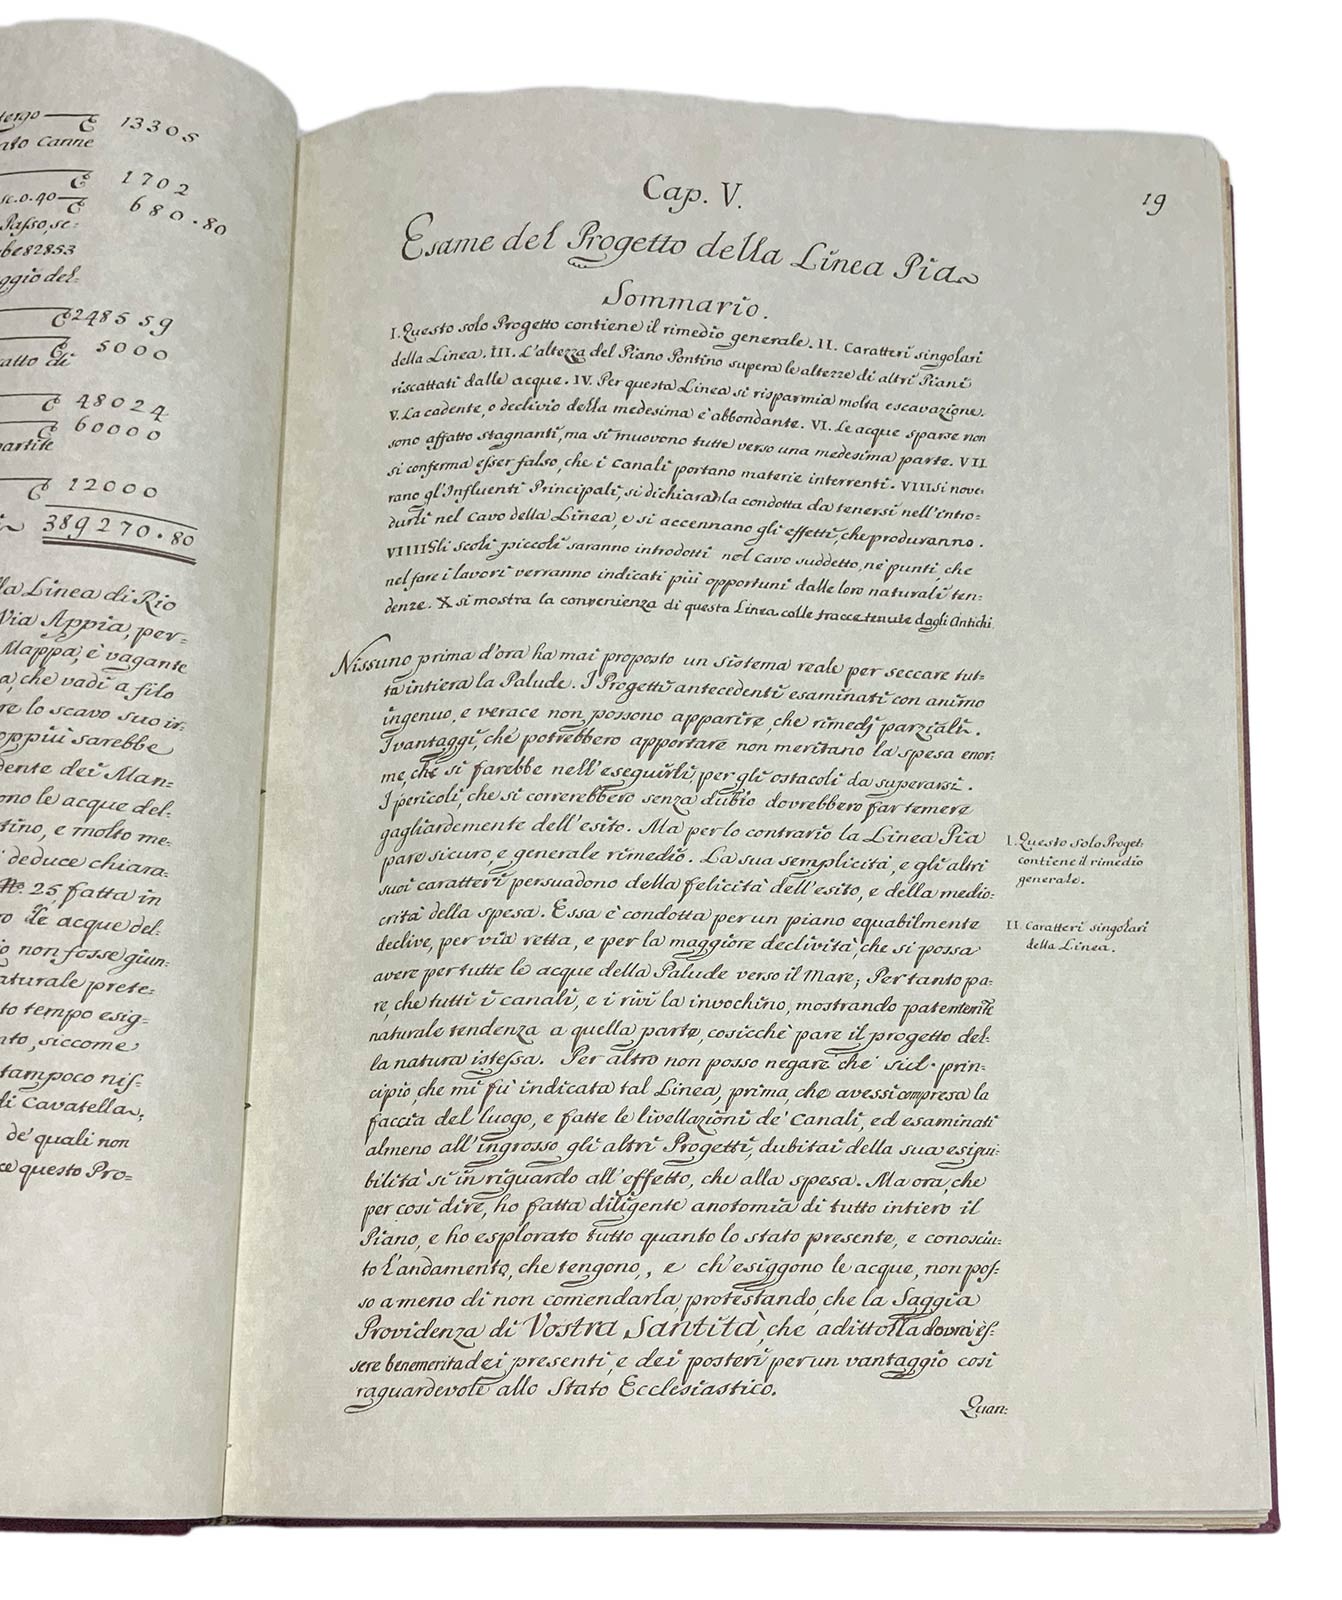 tergo — 13305
ato Canne
1702
sc. 0.40 — 680.80
Passo, sc:
be 82853
ggio del:
248559
5000
atto di
48024
60000
partite
12000
389270.80
la Linea di Rio
Via Appia, per:
Mappa, è vagante
a, che vadi a filo
re lo scavo suo ir:
oppiu sarebbe
dente dei Man:
ono le acque del:
tino, e molto me:
deduce chiara:
No. 25, fatta in
ro le acque del:
io non fosse giun:
aturale prete:
to tempo esig:
nto, siccome
tampoco nis:
di Cavatella,
de' quali non
ce questo Pro:
19
Cap. V.
Esame del Progetto della Linea Pia
Sommario.
I. Questo solo Progetto contiene il rimedio generale. II. Caratteri singolari
della Linea. III. L'altezza del Piano Pontino supera le altezze di altri Piani
riscattati dalle acque. IV. Per questa Linea si risparmia molta escavazione.
V. La cadente, o declivio della medesima è abbondante. VI. Le acque sparse non
sono affatto stagnanti, ma si muovono tutte verso una medesima parte. VII
si conferma esser falso, che i Canali portano materie interrenti. VIII si nove:
rano gl'Influenti Principali, si dichiara la condotta da tenersi nell'intro:
durli nel Cavo della Linea, e si accennano gli effetti, che produranno.
VIIII Gli scoli piccoli saranno introdotti nel Cavo suddetto, ne' punti, che
nel fare i lavori verranno indicati più opportuni dalle loro naturali ten:
denze. X si mostra la convenienza di questa Linea colle tracce tenute dagli Antichi
Nissuno prima d'ora ha mai proposto un sistema reale per seccare tut:
ta intiera la Palude. I Progetti antecedenti esaminati con animo
ingenuo, e verace non possono apparire, che rimedj parziali.
I vantaggi, che potrebbero apportare non meritano la spesa enor:
me, che si farebbe nell'eseguirli, per gli ostacoli da superarsi.
I pericoli, che si correrebbero senza dubio dovrebbero far temere
gagliardemente dell'esito. Ma per lo contrario la Linea Pia
pare sicuro, e generale rimedio. La sua semplicità, e gli altri
suoi caratteri persuadono della felicità dell'esito, e della medio:
crità della spesa. Essa è condotta per un piano equabilmente
declive, per via retta, e per la maggiore declività, che si possa
avere per tutte le acque della Palude verso il Mare; Per tanto pa:
re, che tutti i canali, e i rivi la invochino, mostrando patentem̃te
naturale tendenza a quella parte, cosicchè pare il progetto del:
la natura istessa. Per altro non posso negare che sul prin:
cipio, che mi fù indicata tal Linea, prima, che avessi compresa la
faccia del luogo, e fatte le livellazioni de' Canali, ed esaminati
almeno all'ingrosso gli altri Progetti, dubitai della sua esigui:
bilità si in riguardo all'effetto, che alla spesa. Ma ora, che
per così dire, ho fatta diligente anotomia di tutto intiero il
Piano, e ho esplorato tutto quanto lo stato presente, e conosciu:
to l'andamento, che tengono, e ch'esiggono le acque, non pos:
so a meno di non comendarla, protestando, che la Saggia
Providenza di Vostra Santità, che adittolla dovrà ès:
sere benemerita dei presenti, e dei posteri per un vantaggio così
raguardevole allo Stato Ecclesiastico.
Quan:
I. Questo solo Proget:
contiene il rimedio
generale.
II. Caratteri singolari
della Linea.